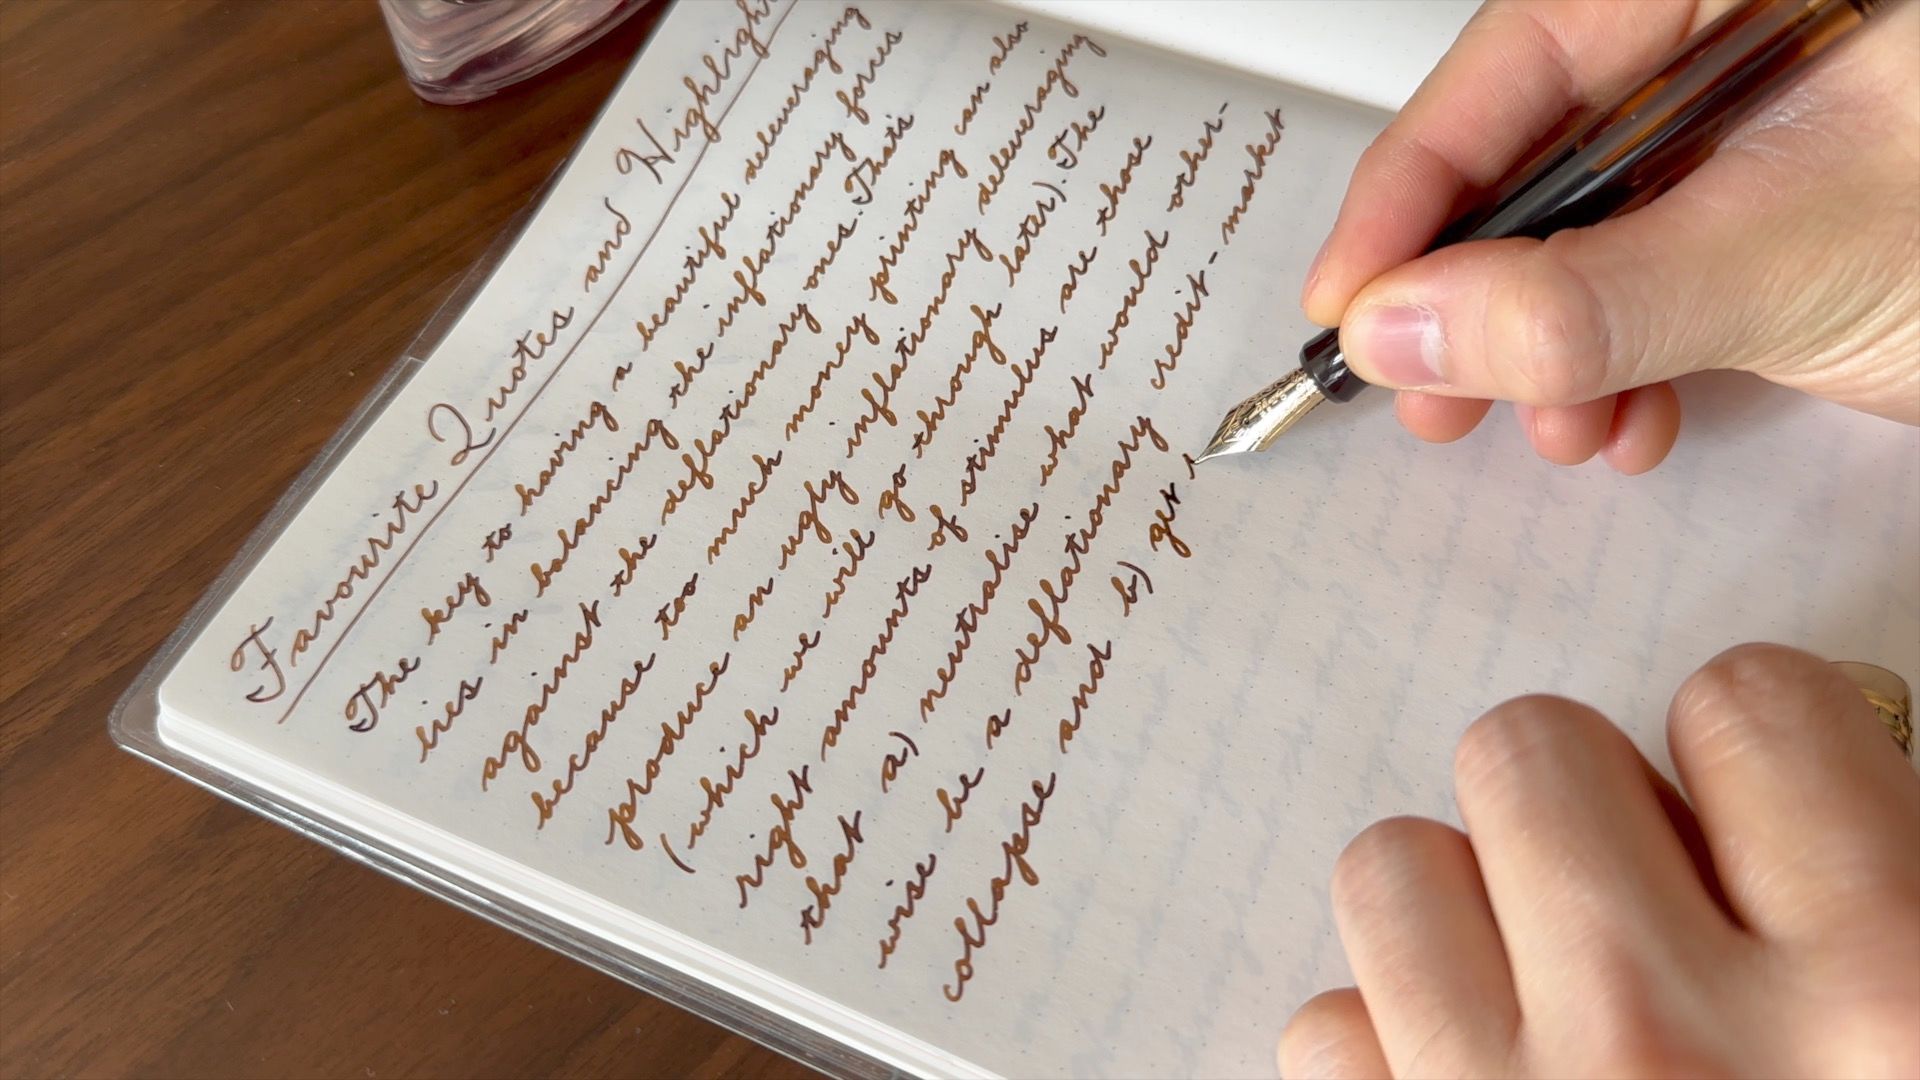 Favourite Quotes and Highligh
The key to having a beautiful deleveraging
lies in balancing the inflationary forces
against the deflationary ones. That's
because too much money printing can also
produce an ugly inflationary deleveraging
(which we will go through later). The
right amounts of stimulus are those
that a) neutralise what would other-
wise be a deflationary credit-market
collapse and b) get